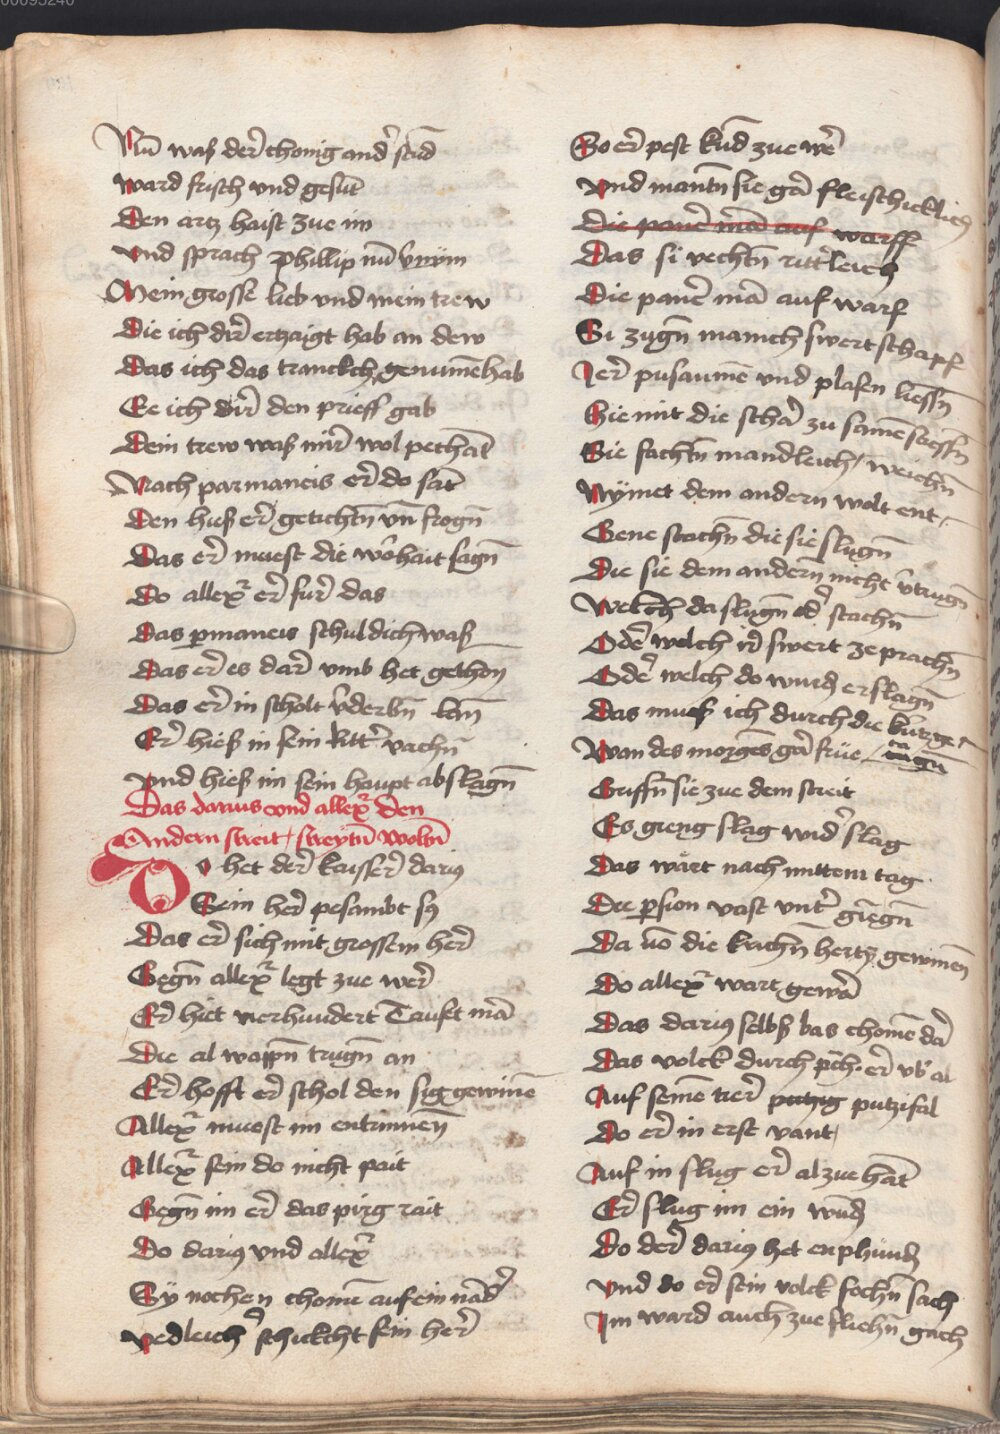 00093240
Nū waß der̄ chonig and̕ stūd
Ward frisch vnd gesūt
Den artz haist zue im
Vnd sprach phillip nū v̄nym
Mein grosse lieb vnd mein trew
Die ich dir̄ ertzaigt hab an dew
Das ich das tranckch genumē hab
Ee ich dir̄ den prieff gab
Dein trew waß mir̄ wol pechāt
Nach parmaneis er̄ do sāt
Den hieß er̄ getichtn̄ vn̄ frogn̄
Das er̄ muest die wo̕hait sagn̄
Do allex̄ er̄ fur̄ das
Das pmaneis schuldich waß
Das er̄ es dar̄ vmb het gethon̄
Das er̄ in scholt v̄derbn̄ lan̄
Er̄ hieß in sein ritt̕ vachn̄
Vnd hieß im sein haupt abslagn̄
Das darius vnd allex̄ den
Andern streit streytn̄ woln̄
Do het der̄ kaisser̄ dariꝰ
Sein her̄ pesambt sꝰ
Das er̄ sich mit grossem her̄
Gegn̄ allex̄ legt zue wer̄
Er̄ hiet vierhundert Tauset mā
Die al wappn̄ trugn̄ an
Er̄ hofft er̄ schol den sig gewinē
Allex̄ muest im entrinnen̄
Allex̄ sein do nicht pait
Gegn̄ im er̄ das pirg rait
Do dariꝰ vnd allex̄
Sy nochen chomē auf ein nād̕
Yedleich̕ schickcht sein her̄
So er̄ pest kūd zue wer̄
Vnd mantn̄ sie gar̄ fleischicklich
Die paner̄ mā auf warff
Das si vechtn̄ ritt̕leich
Die paner̄ mā auf warf
Si zugn̄ manich swert scharpf
Ier̄ pusaumē vnd plasen liessn̄
Sie mit die schar̄ zu samē stiessn̄
Sie fachtn̄ mandleich / weichn̄
Nymet dem andern wolt ent /
Gene stachn̄ die sie slugn̄
Die sie dem andern̄ nicht v̄trugn̄
Welch da slugn̄ od̕ stachn̄
Oder̄ welch ir̄ swert ze prachn̄
Oder̄ welch do wurdn̄ erslagn̄
Das mueß ich durch die kurtze
Wan des morgēs gar̄ frue / tagn̄
Griffn̄ sie zue dem streit
Es gieng slag wid̕ slag
Das wart nach mittem tag
Die psion vast vnt̕ giēgn̄
Da vō die krichn̄ hertz gewinen̄
Do allex̄ wart gewar̄
Das dariꝰ selbß bas chomē dar̄
Das volck durch pch er̄ vb̕ al
Auf seinē tier̄ putzig putzifal
Do er̄ in erst vant
Auf in slug er̄ alzue hāt
Er̄ slug im ein wundn̄
Do der̄ dariꝰ het enphundn̄
Vnd do er̄ sein volck fechn̄ sach
Im ward auch zue fliehn̄ gach